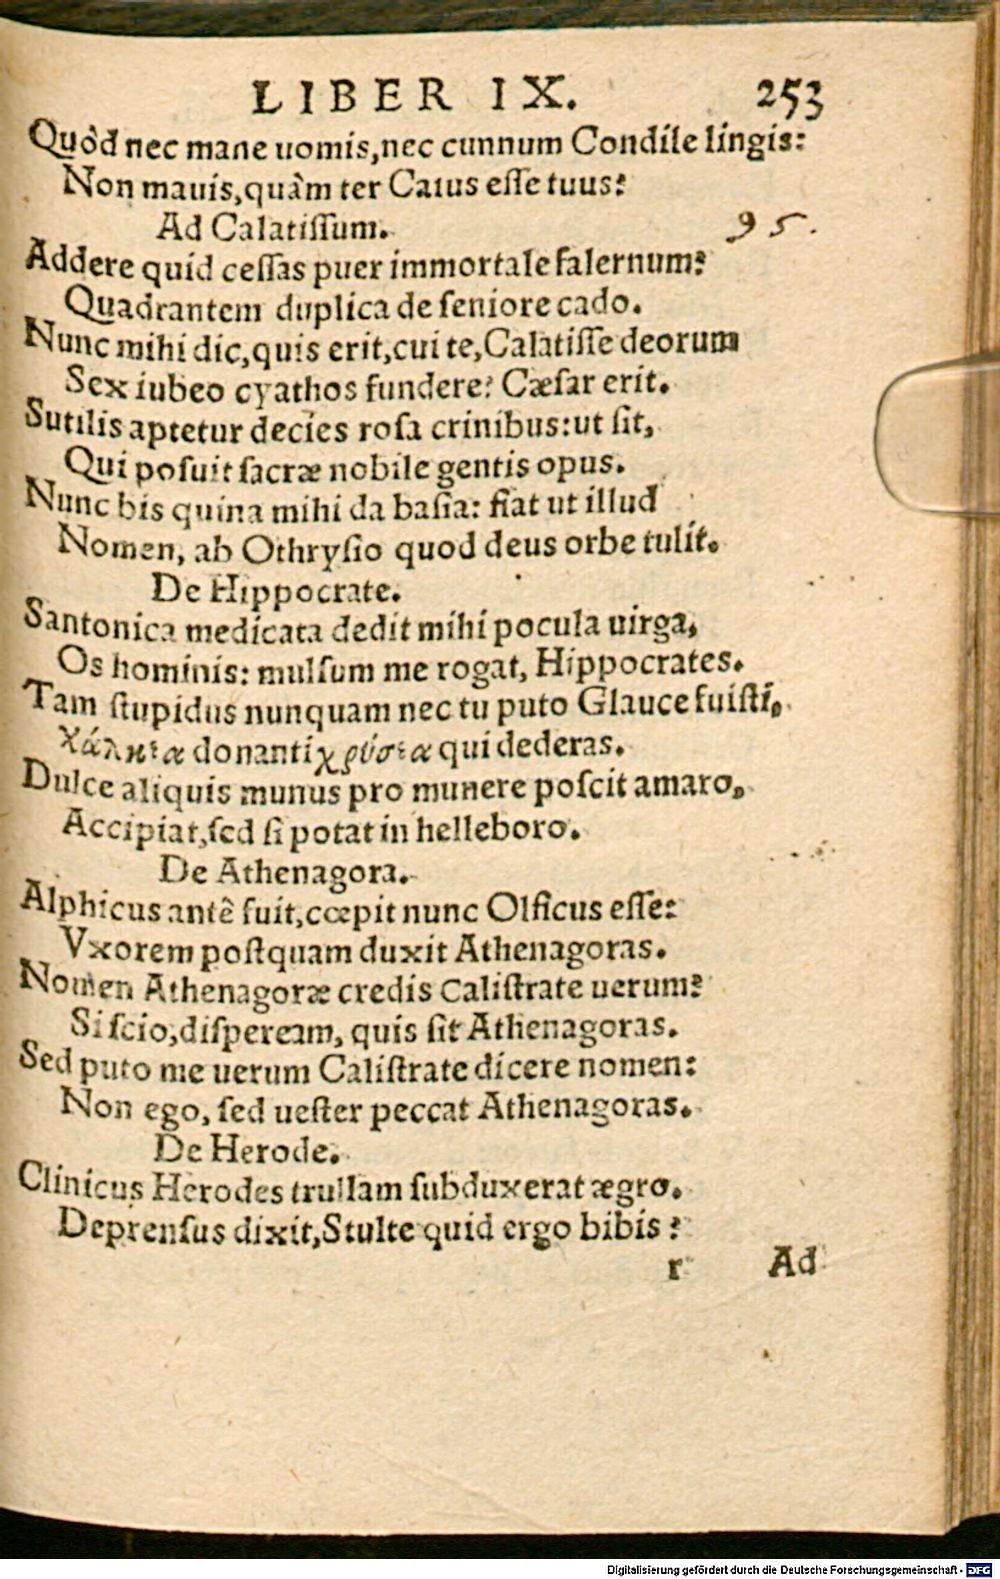 LIBER IX. 253
Quòd nec mane uomis, nec cunnum Condile lingis:
Non mauis, quàm ter Caius esse tuus?
Ad Calatissum. 95.
Addere quid cessas puer immortale falernum?
Quadrantem duplica de seniore cado.
Nunc mihi dic, quis erit, cui te, Calatisse deorum
Sex iubeo cyathos fundere? Cæsar erit.
Sutilis aptetur decies rosa crinibus: ut sit,
Qui posuit sacræ nobile gentis opus.
Nunc bis quina mihi da basia: fiat ut illud
Nomen, ab Othrysio quod deus orbe tulit.
De Hippocrate.
Santonica medicata dedit mihi pocula uirga,
Os hominis: mulsum me rogat, Hippocrates.
Tam stupidus nunquam nec tu puto Glauce fuisti,
χάλκια donanti χρύσια qui dederas.
Dulce aliquis munus pro munere poscit amaro,
Accipiat, sed si potat in helleboro.
De Athenagora.
Alphicus antè fuit, cœpit nunc Olficus esse:
Vxorem postquam duxit Athenagoras.
Nomen Athenagoræ credis Calistrate uerum?
Si scio, dispeream, quis sit Athenagoras.
Sed puto me uerum Calistrate dicere nomen:
Non ego, sed uester peccat Athenagoras.
De Herode.
Clinicus Herodes trullam subduxerat ægro.
Deprensus dixit, Stulte quid ergo bibis?
r Ad
Digitalisierung gefördert durch die Deutsche Forschungsgemeinschaft - DFG